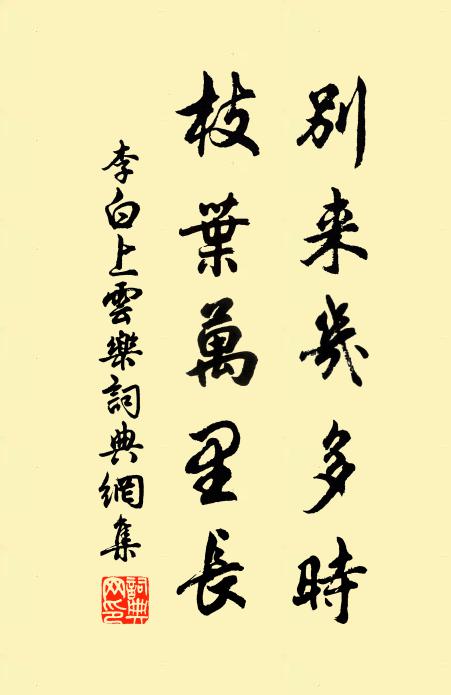 別来幾多時
枝葉萬里長
李白上雲樂詞典網集
詞典網印